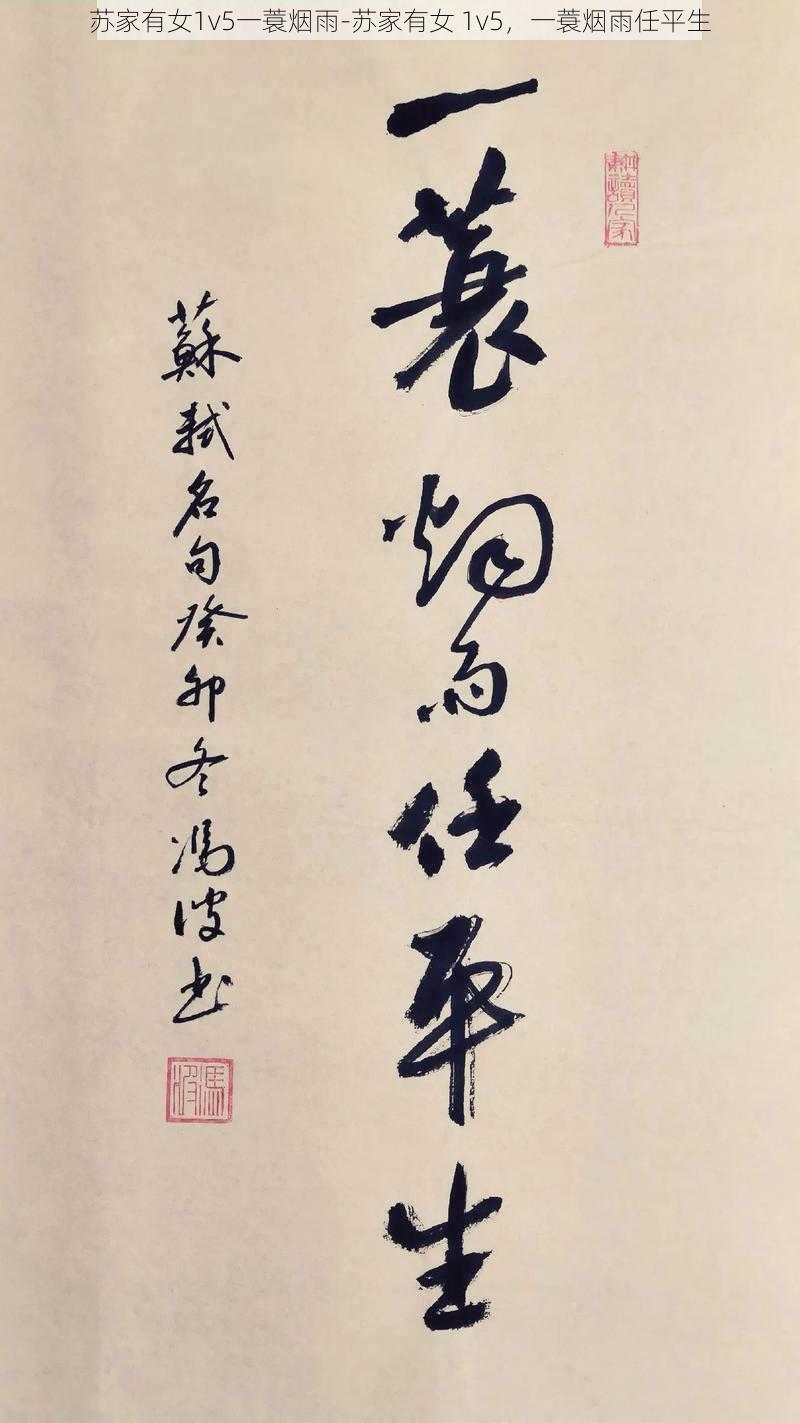 苏家有女1v5一蓑烟雨-苏家有女 1v5，一蓑烟雨任平生
耕讀人家
一蓑烟雨任平生
蘇軾名句癸卯冬馮波书
馮波